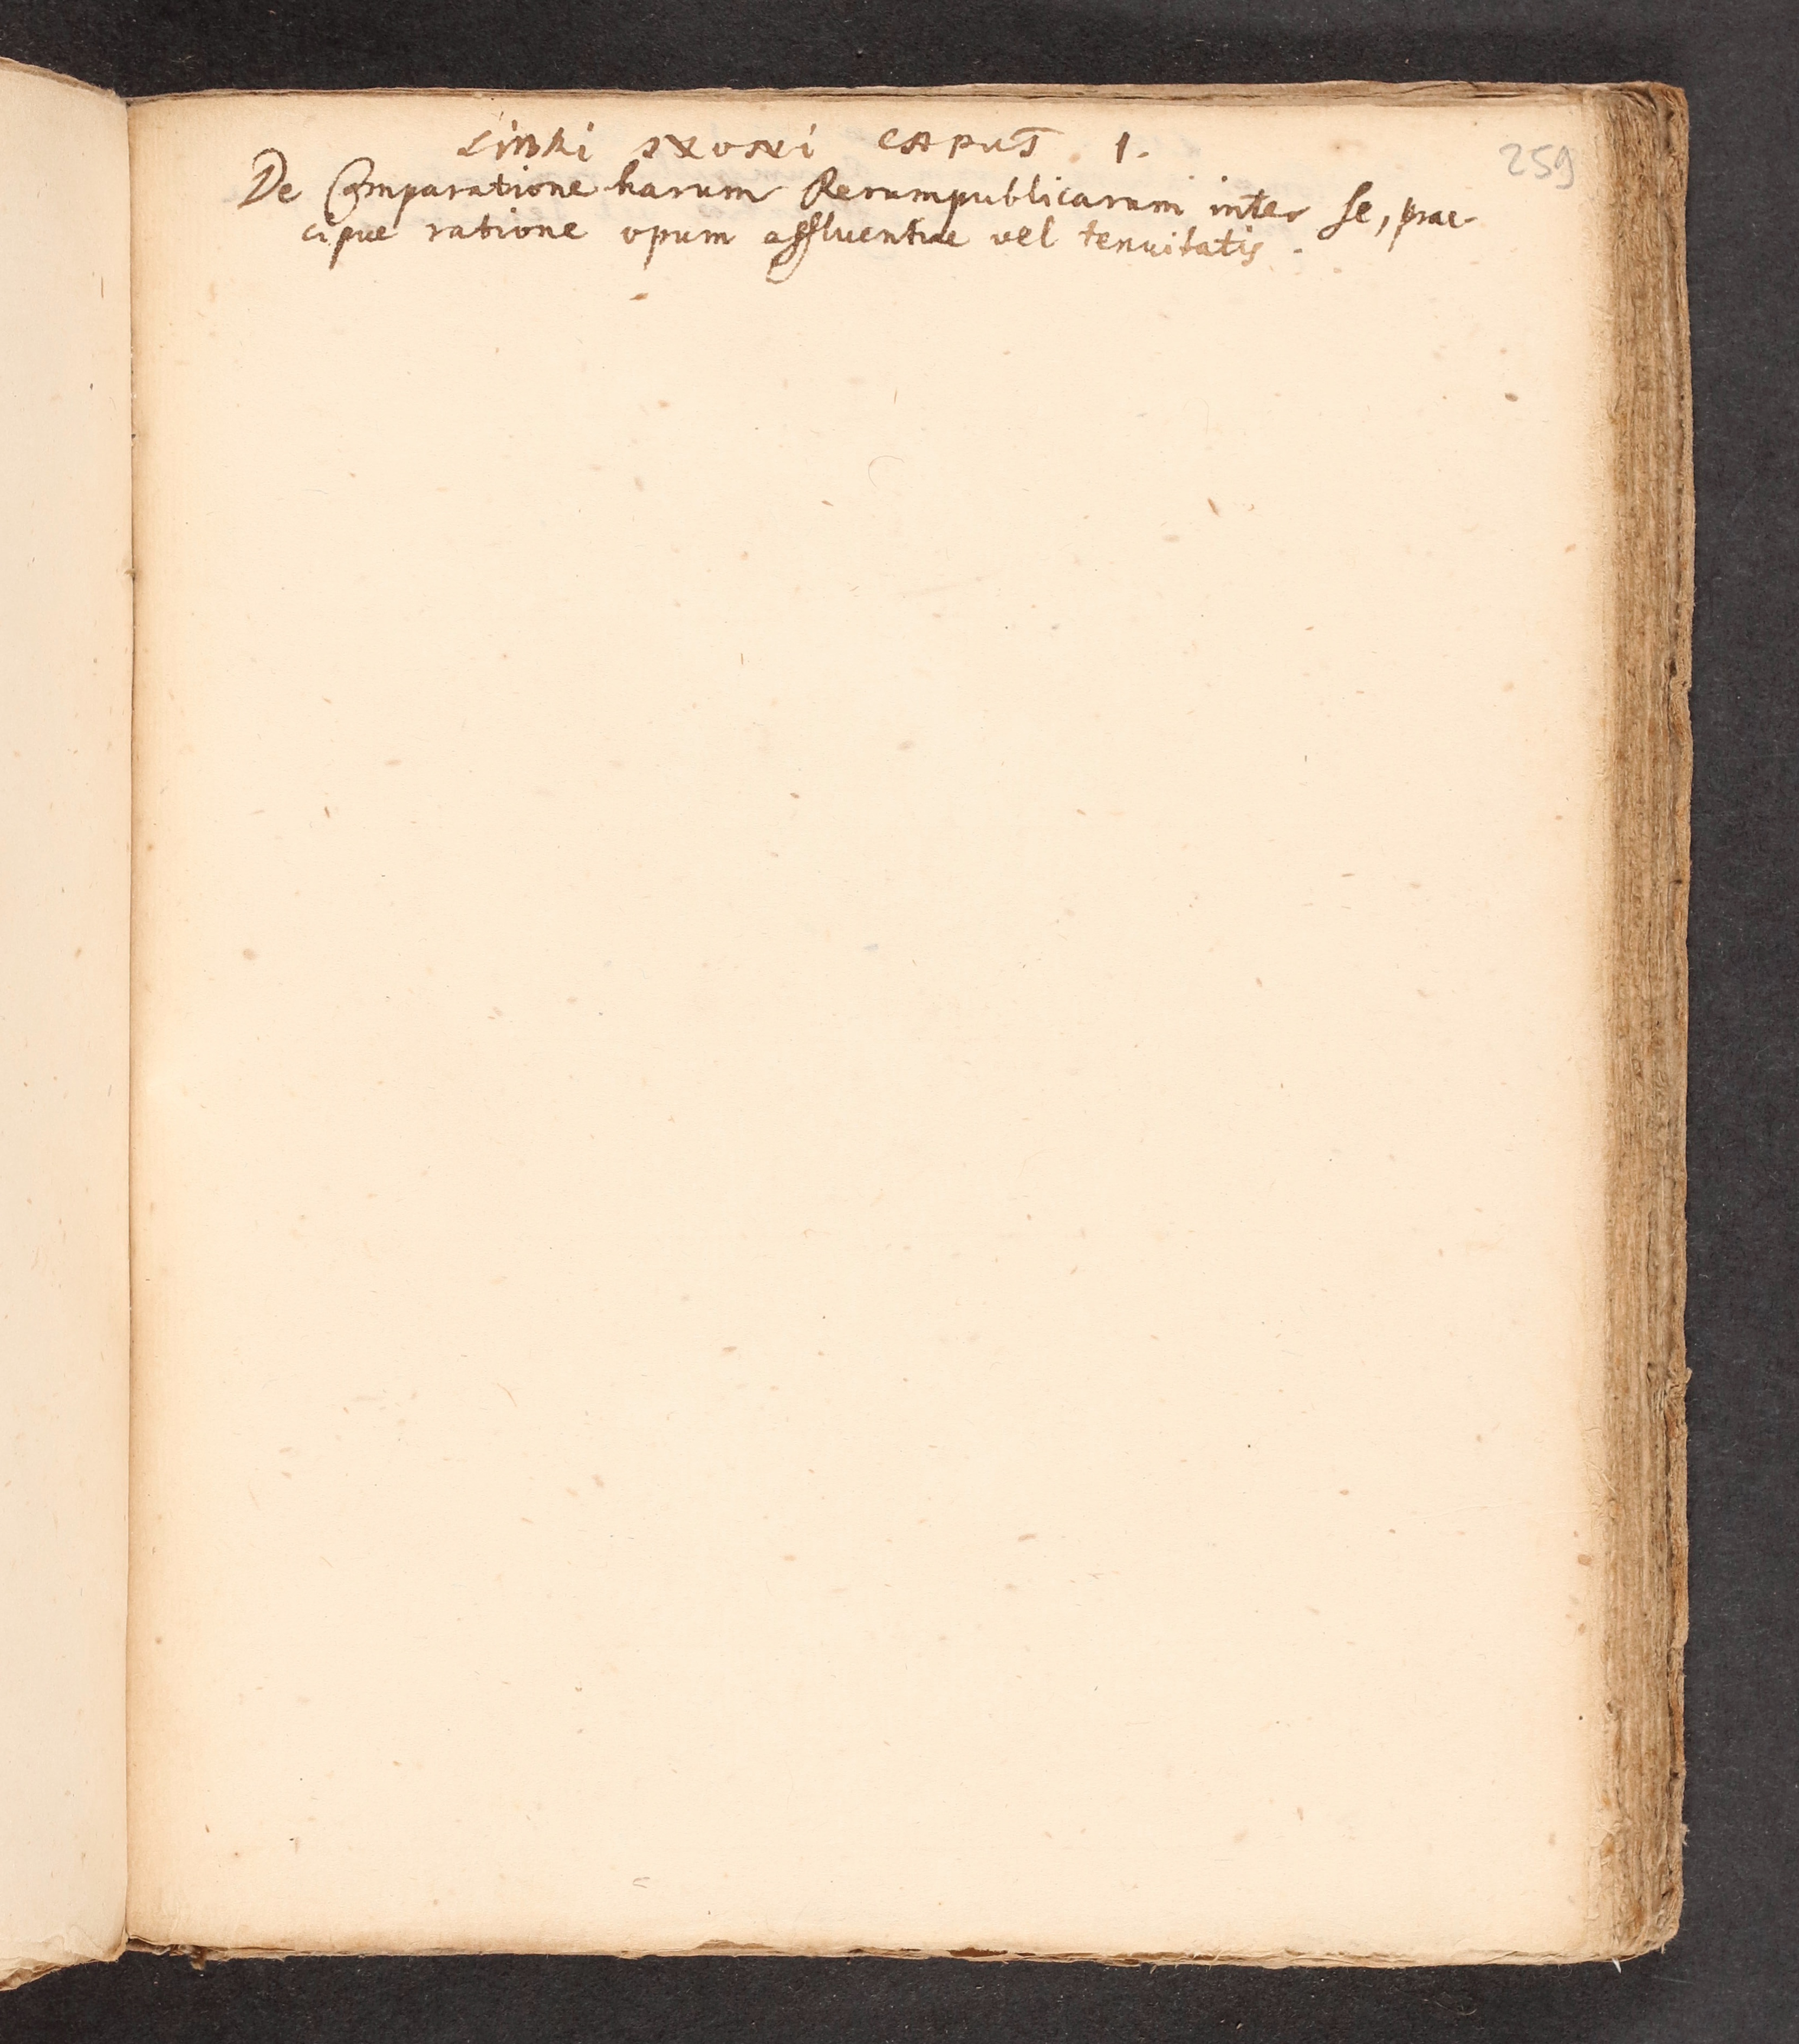 LIBRI NONI CAPUT 1.
259
De Comparatione harum Rerumpublicarum inter se, prae-
cipue ratione opum affluentiae vel tenuitatis.